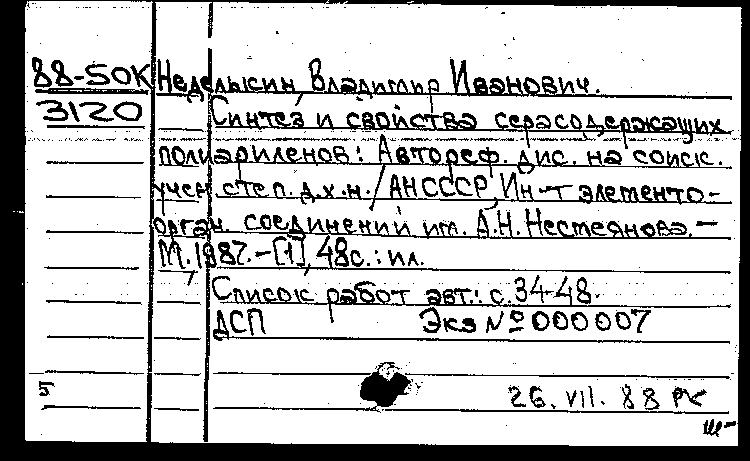 88-50К Неделькин, Владимир Иванович.
3120 Синтез и свойства серасодержащих
полиариленов: Автореф. дис. на соиск.
учен. степ. д.х.н. / АН СССР, Ин-т элементо-
орган. соединений им. А.Н. Несмеянова. –
М., 1987. – [1], 48с. : ил.
Список работ авт.: с. 34-48.
ДСП Экз № 000007
5 26. VII. 88 РК